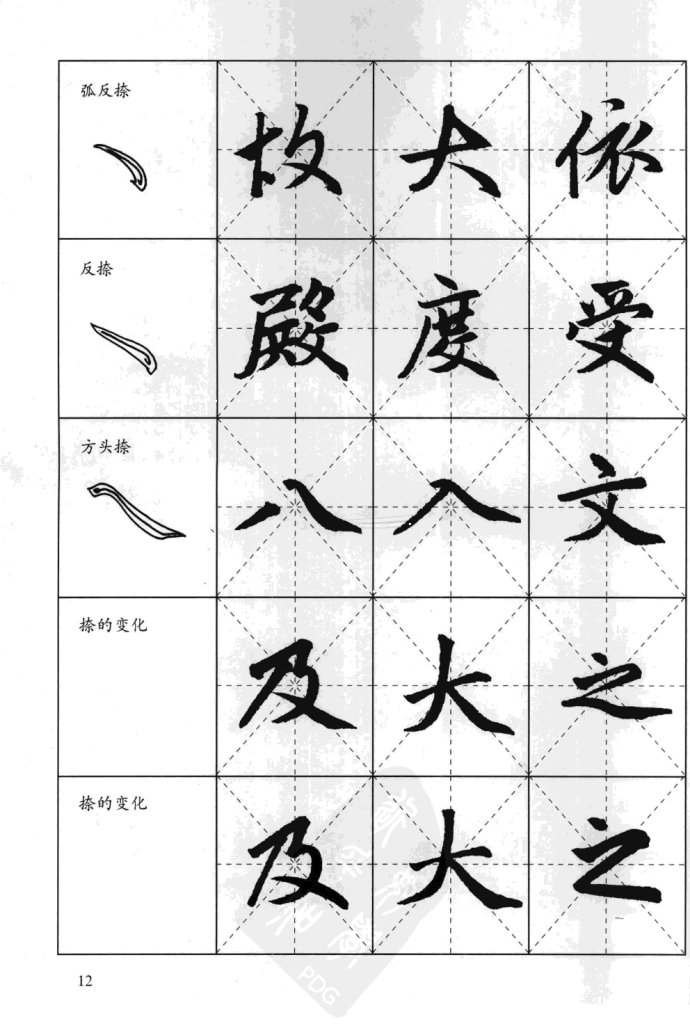 弧反捺 故 大 依
反捺 殿 度 受
方头捺 八 入 文
捺的变化 及 大 之
捺的变化 及 大 之
12
PDG